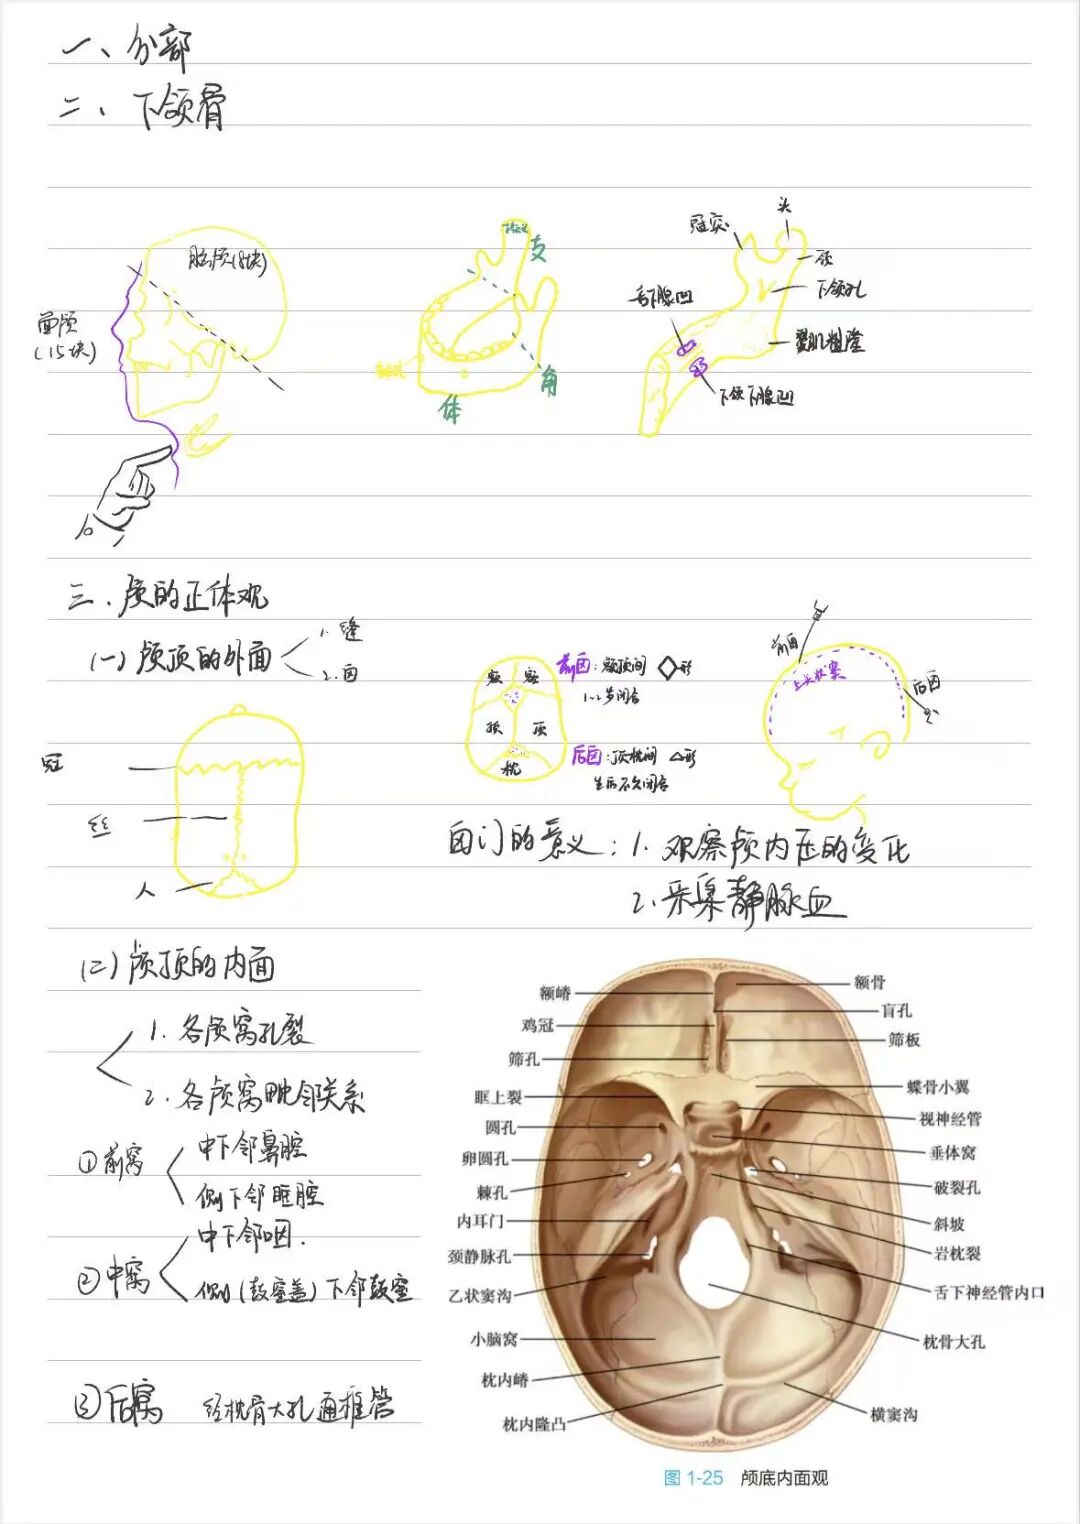 一、分部
二、下颌骨
脑颅(8块)
面颅
(15块)
支
角
体
冠突
头
颈
下颌孔
舌下腺凹
翼肌粗隆
下颌下腺凹
三.颅的正体观
(一)颅顶的外面
1.缝
2.囟
额 额
顶 顶
枕
前囟:额顶间◇形
1~2岁闭合
后囟:顶枕间 △形
生后不久闭合
前囟
上矢状窦
后囟
冠
人
囟门的意义:1.观察颅内压的变化
2.采集静脉血
(二)颅顶的内面
1.各颅窝孔裂
2.各颅窝毗邻关系
①前窝
中下邻鼻腔
侧下邻眶腔
②中窝
中下邻咽.
侧(鼓室盖)下邻鼓室
③后窝 经枕骨大孔通椎管
额嵴
鸡冠
筛孔
眶上裂
圆孔
卵圆孔
棘孔
内耳门
颈静脉孔
乙状窦沟
小脑窝
枕内嵴
枕内隆凸
额骨
盲孔
筛板
蝶骨小翼
视神经管
垂体窝
破裂孔
斜坡
岩枕裂
舌下神经管内口
枕骨大孔
横窦沟
图 1-25 颅底内面观